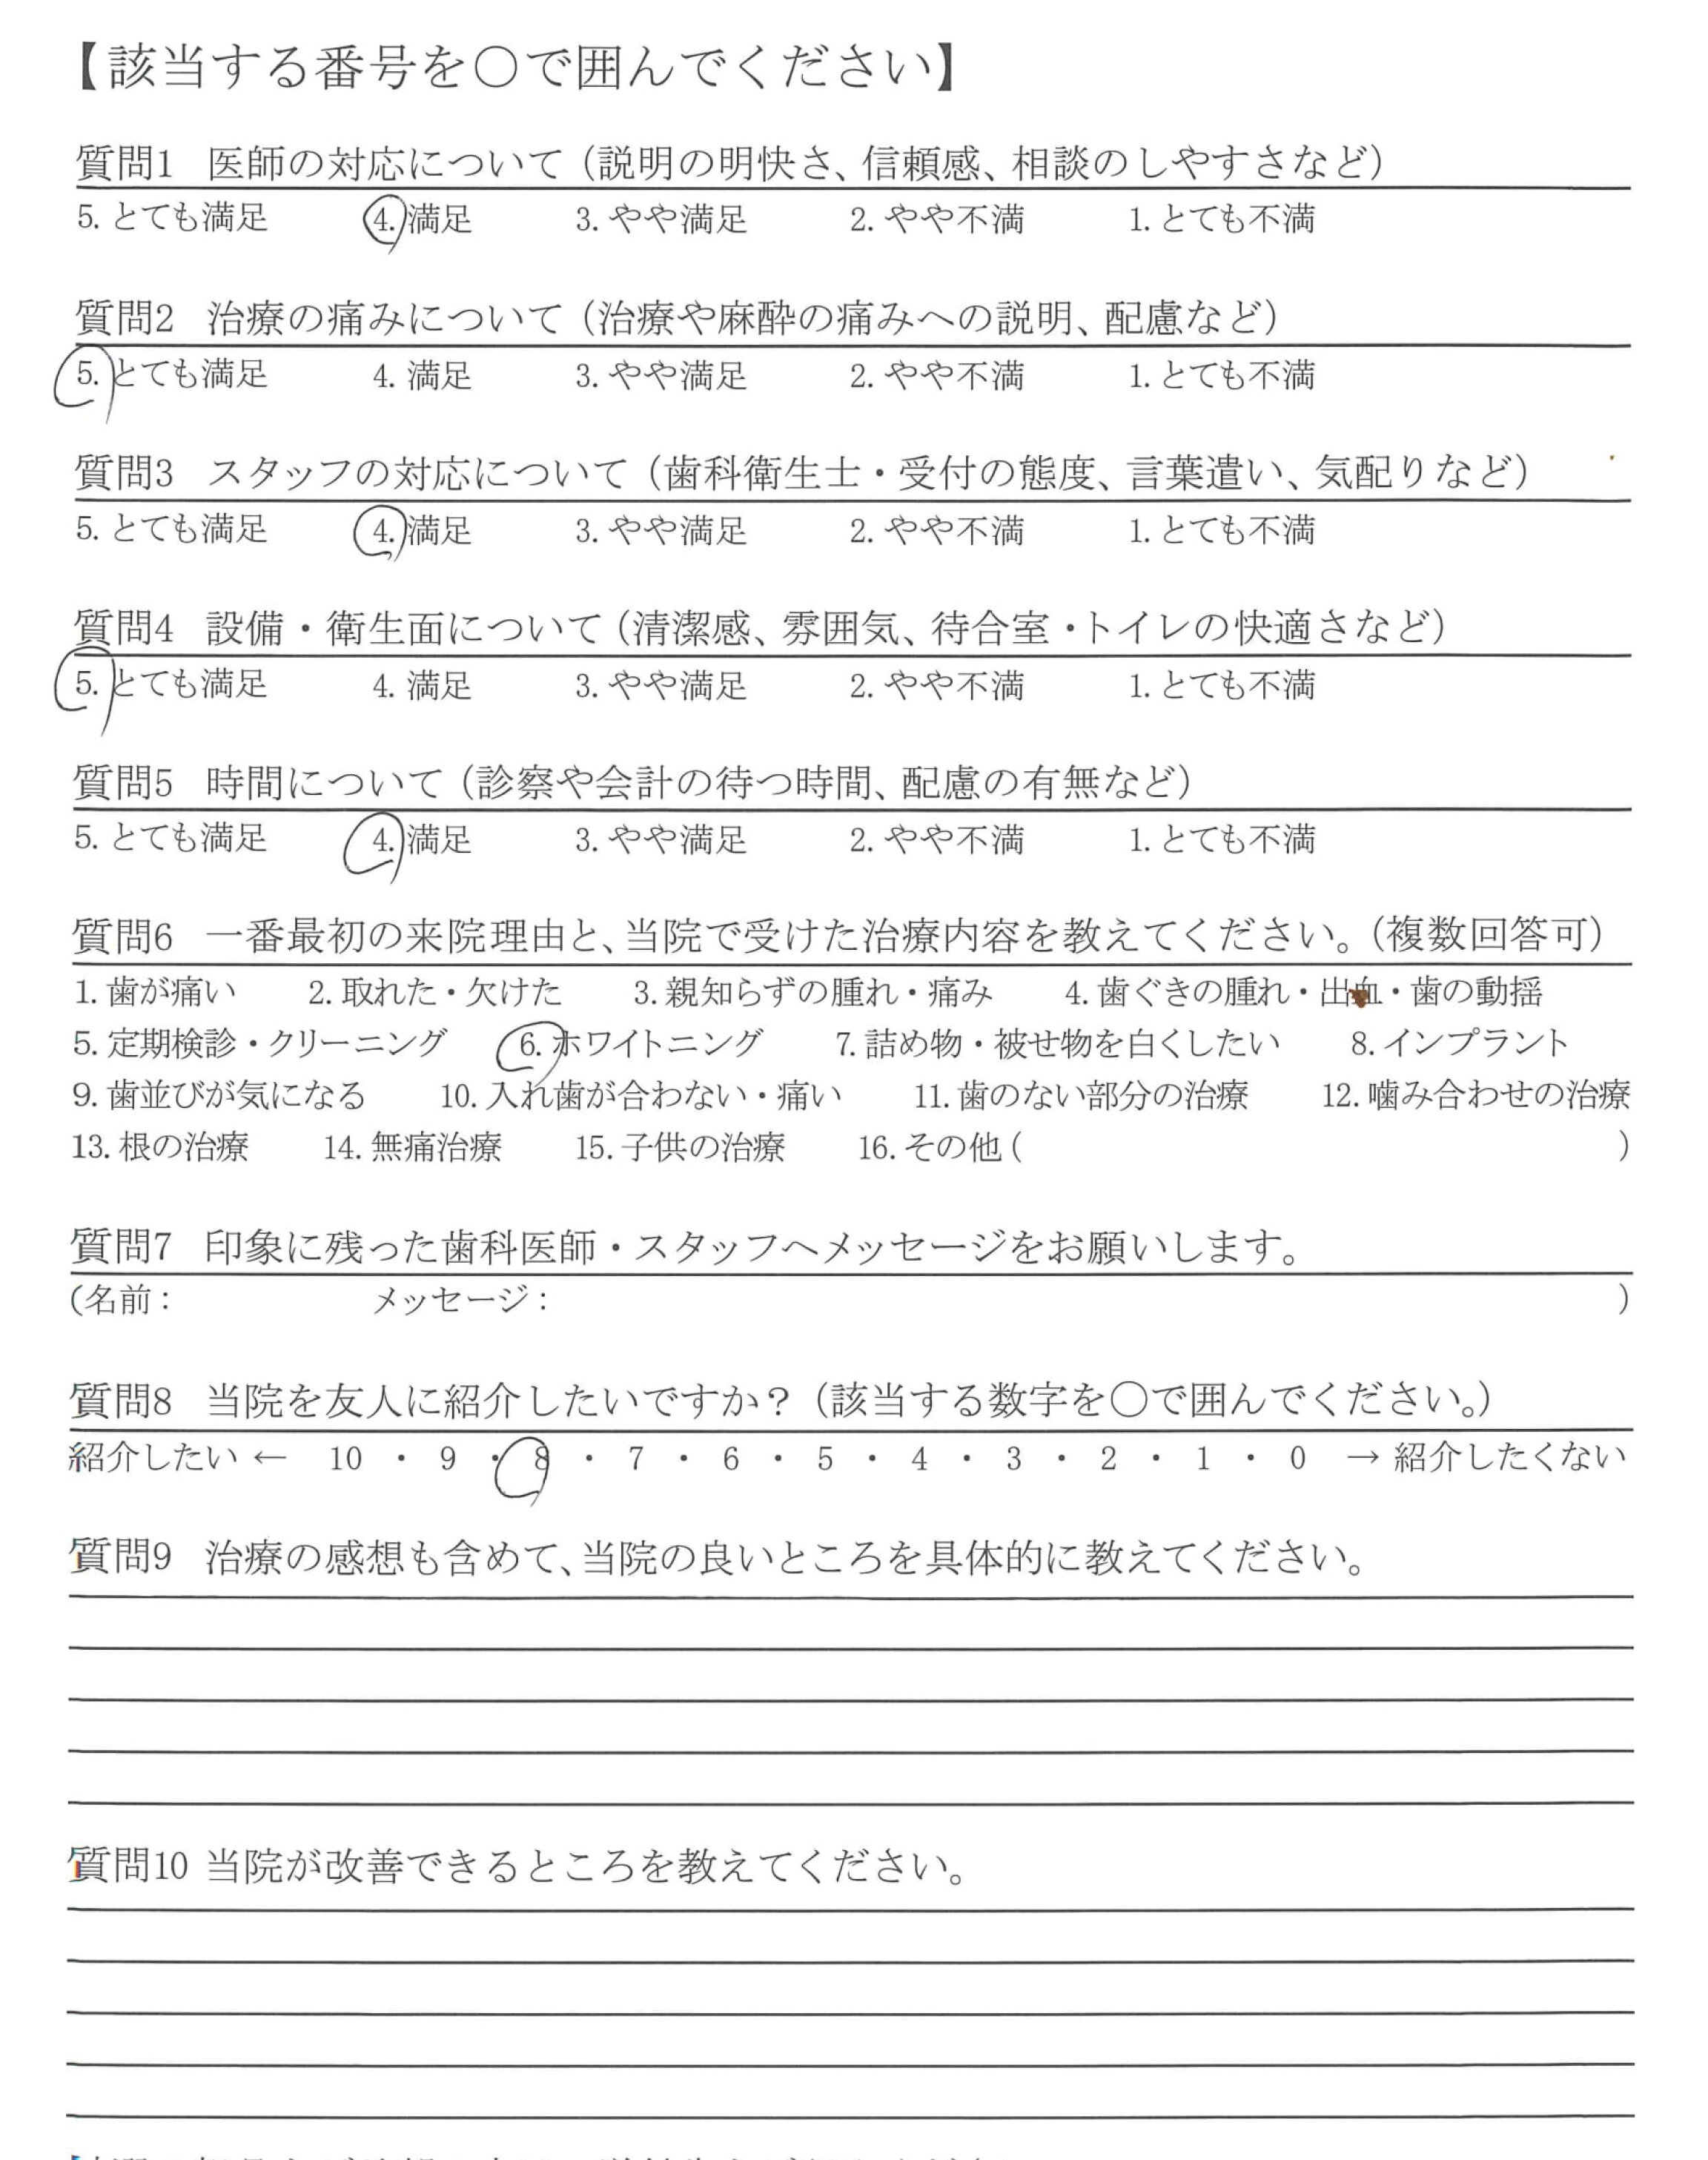 【該当する番号を○で囲んでください】
質問1 医師の対応について（説明の明快さ、信頼感、相談のしやすさなど）
5. とても満足 4. 満足 3. やや満足 2. やや不満 1. とても不満
質問2 治療の痛みについて（治療や麻酔の痛みへの説明、配慮など）
5. とても満足 4. 満足 3. やや満足 2. やや不満 1. とても不満
質問3 スタッフの対応について（歯科衛生士・受付の態度、言葉遣い、気配りなど）
5. とても満足 4. 満足 3. やや満足 2. やや不満 1. とても不満
質問4 設備・衛生面について（清潔感、雰囲気、待合室・トイレの快適さなど）
5. とても満足 4. 満足 3. やや満足 2. やや不満 1. とても不満
質問5 時間について（診察や会計の待つ時間、配慮の有無など）
5. とても満足 4. 満足 3. やや満足 2. やや不満 1. とても不満
質問6 一番最初の来院理由と、当院で受けた治療内容を教えてください。（複数回答可）
1. 歯が痛い 2. 取れた・欠けた 3. 親知らずの腫れ・痛み 4. 歯ぐきの腫れ・出血・歯の動揺
5. 定期検診・クリーニング 6. ホワイトニング 7. 詰め物・被せ物を白くしたい 8. インプラント
9. 歯並びが気になる 10. 入れ歯が合わない・痛い 11. 歯のない部分の治療 12. 噛み合わせの治療
13. 根の治療 14. 無痛治療 15. 子供の治療 16. その他 ( )
質問7 印象に残った歯科医師・スタッフへメッセージをお願いします。
(名前： メッセージ： )
質問8 当院を友人に紹介したいですか？（該当する数字を○で囲んでください。）
紹介したい ← 10 ・ 9 ・ 8 ・ 7 ・ 6 ・ 5 ・ 4 ・ 3 ・ 2 ・ 1 ・ 0 → 紹介したくない
質問9 治療の感想も含めて、当院の良いところを具体的に教えてください。
質問10 当院が改善できるところを教えてください。